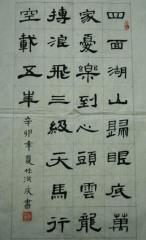 四面湖山歸眼底萬
家憂樂到心頭雲龍
搏浪飛三級天馬行
空載五車
辛卯年夏任洪庆書